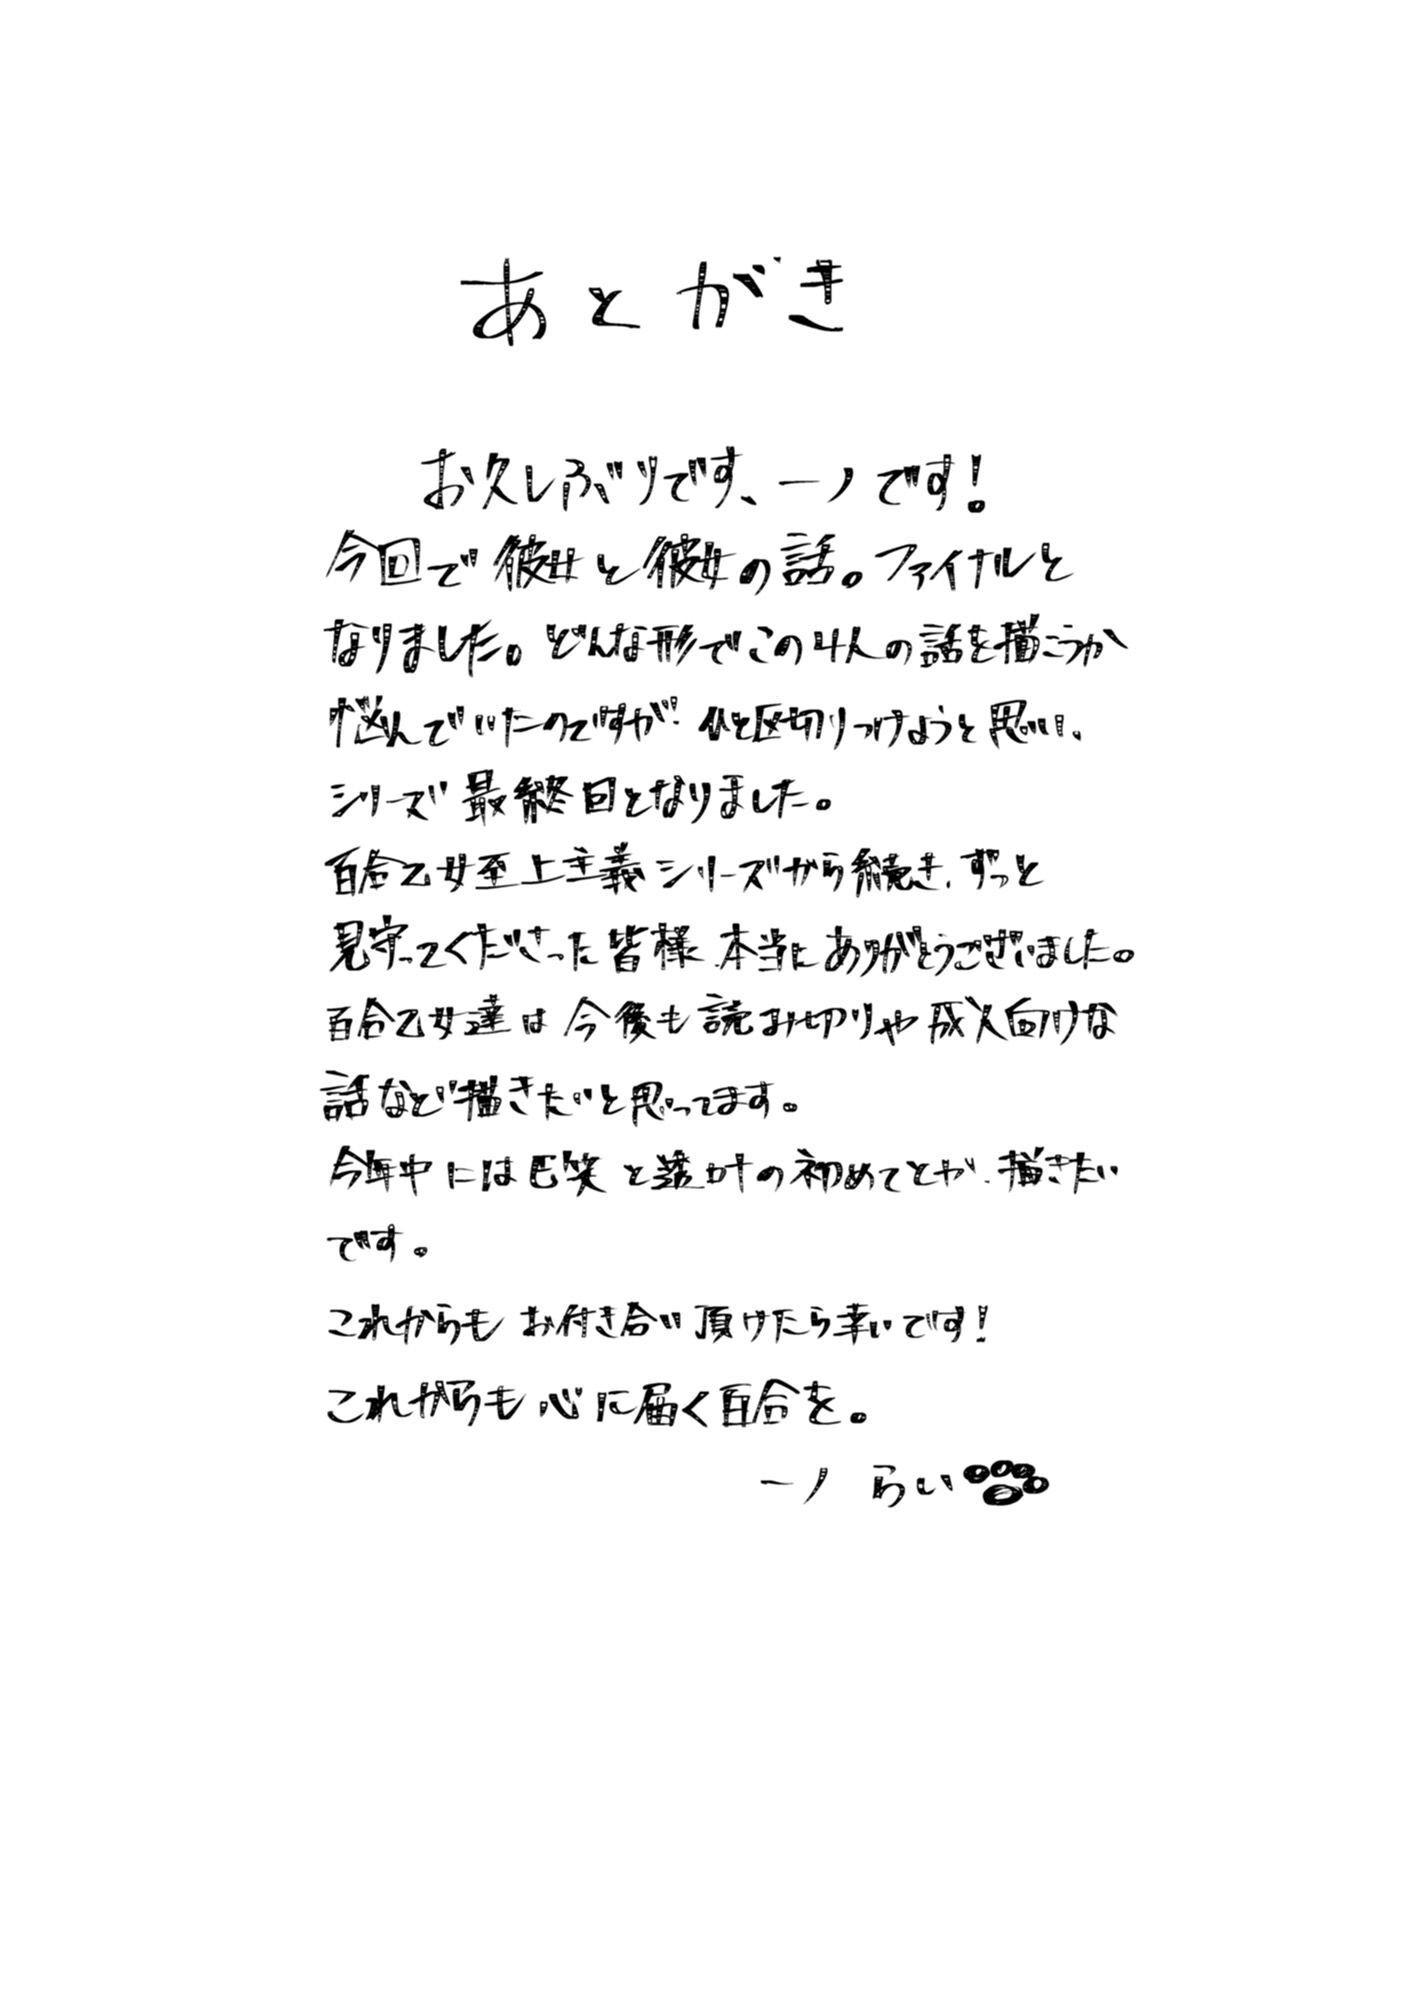 あとがき
お久しぶりです、一ノです！
今回で彼女と彼女の話。ファイナルと
なりました。どんな形でこの4人の話を描こうか
悩んでいたのですが、ひと区切りつけようと思い、
シリーズ最終回となりました。
百合乙女至上主義シリーズから続き、ずっと
見守ってくださった皆様、本当にありがとうございました。
百合乙女達は今後も読み切りや成人向けな
話など描きたいと思ってます。
今年中には笑との初めてとか、描きたい
です。
これからもお付き合い頂けたら幸いです！
これからも心に届く百合を。
一ノ らい